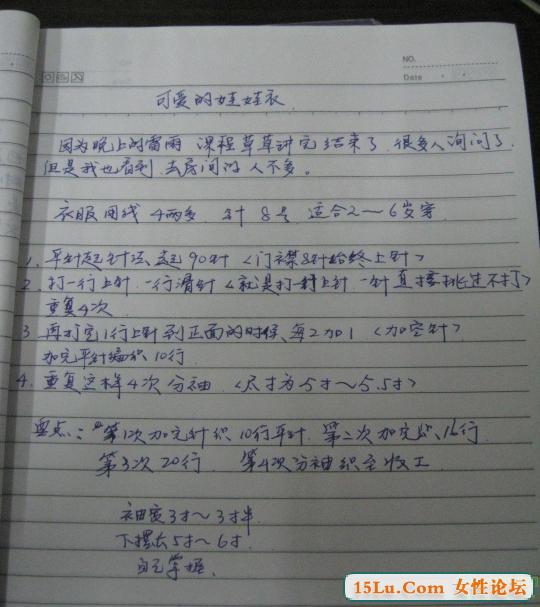 NO.
Date
可爱的娃娃衣
因为晚上的雷雨 课程草草讲完结束了 很多人询问了
但是我也看到 去房间的人不多。
衣服用线 4两多 针 8号 适合2～6岁穿
1、平针起针法、起90针〈门襟8针始终上针〉
2、打一行上针 一行滑针〈就是打一针上针 一针直接挑过不打〉
重复4次
3 再打完1行上针到正面的时候、每2加1〈加空针〉
加完平针编织10行
4、重复这样4次分袖〈尺寸为5寸～5.5寸〉
要点：“第1次加完针织10行平针、第二次加完织16行
第3次20行 第4次分袖织至收工
袖宽3寸～3寸半
下摆长5寸～6寸
自己掌握.
15Lu.Com 女性论坛